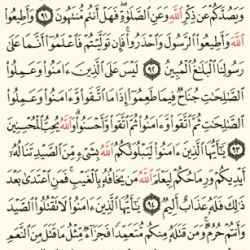 وَيَصُدَّكُمْ عَن ذِكْرِ ٱللَّهِ وَعَنِ ٱلصَّلَوٰةِ فَهَلْ أَنتُم مُّنتَهُونَ ٩١ وَأَطِيعُوا۟
ٱللَّهَ وَأَطِيعُوا۟ ٱلرَّسُولَ وَٱحْذَرُوا۟ فَإِن تَوَلَّيْتُمْ فَٱعْلَمُوٓا۟ أَنَّمَا عَلَىٰ
رَسُولِنَا ٱلْبَلَٰغُ ٱلْمُبِينُ ٩٢ لَيْسَ عَلَى ٱلَّذِينَ ءَامَنُوا۟ وَعَمِلُوا۟
ٱلصَّٰلِحَٰتِ جُنَاحٌ فِيمَا طَعِمُوٓا۟ إِذَا مَا ٱتَّقَوا۟ وَّءَامَنُوا۟ وَعَمِلُوا۟
ٱلصَّٰلِحَٰتِ ثُمَّ ٱتَّقَوا۟ وَّءَامَنُوا۟ ثُمَّ ٱتَّقَوا۟ وَّأَحْسَنُوا۟ وَٱللَّهُ يُحِبُّ ٱلْمُحْسِنِينَ
٩٣ يَٰٓأَيُّهَا ٱلَّذِينَ ءَامَنُوا۟ لَيَبْلُوَنَّكُمُ ٱللَّهُ بِشَىْءٍ مِّنَ ٱلصَّيْدِ تَنَالُهُۥٓ
أَيْدِيكُمْ وَرِمَاحُكُمْ لِيَعْلَمَ ٱللَّهُ مَن يَخَافُهُۥ بِٱلْغَيْبِ فَمَنِ ٱعْتَدَىٰ بَعْدَ
ذَٰلِكَ فَلَهُۥ عَذَابٌ أَلِيمٌ ٩٤ يَٰٓأَيُّهَا ٱلَّذِينَ ءَامَنُوا۟ لَا تَقْتُلُوا۟ ٱلصَّيْدَ
وَأَنتُمْ حُرُمٌ وَمَن قَتَلَهُۥ مِنكُم مُّتَعَمِّدًا فَجَزَآءٌ مِّثْلُ مَا قَتَلَ مِنَ ٱلنَّعَمِ